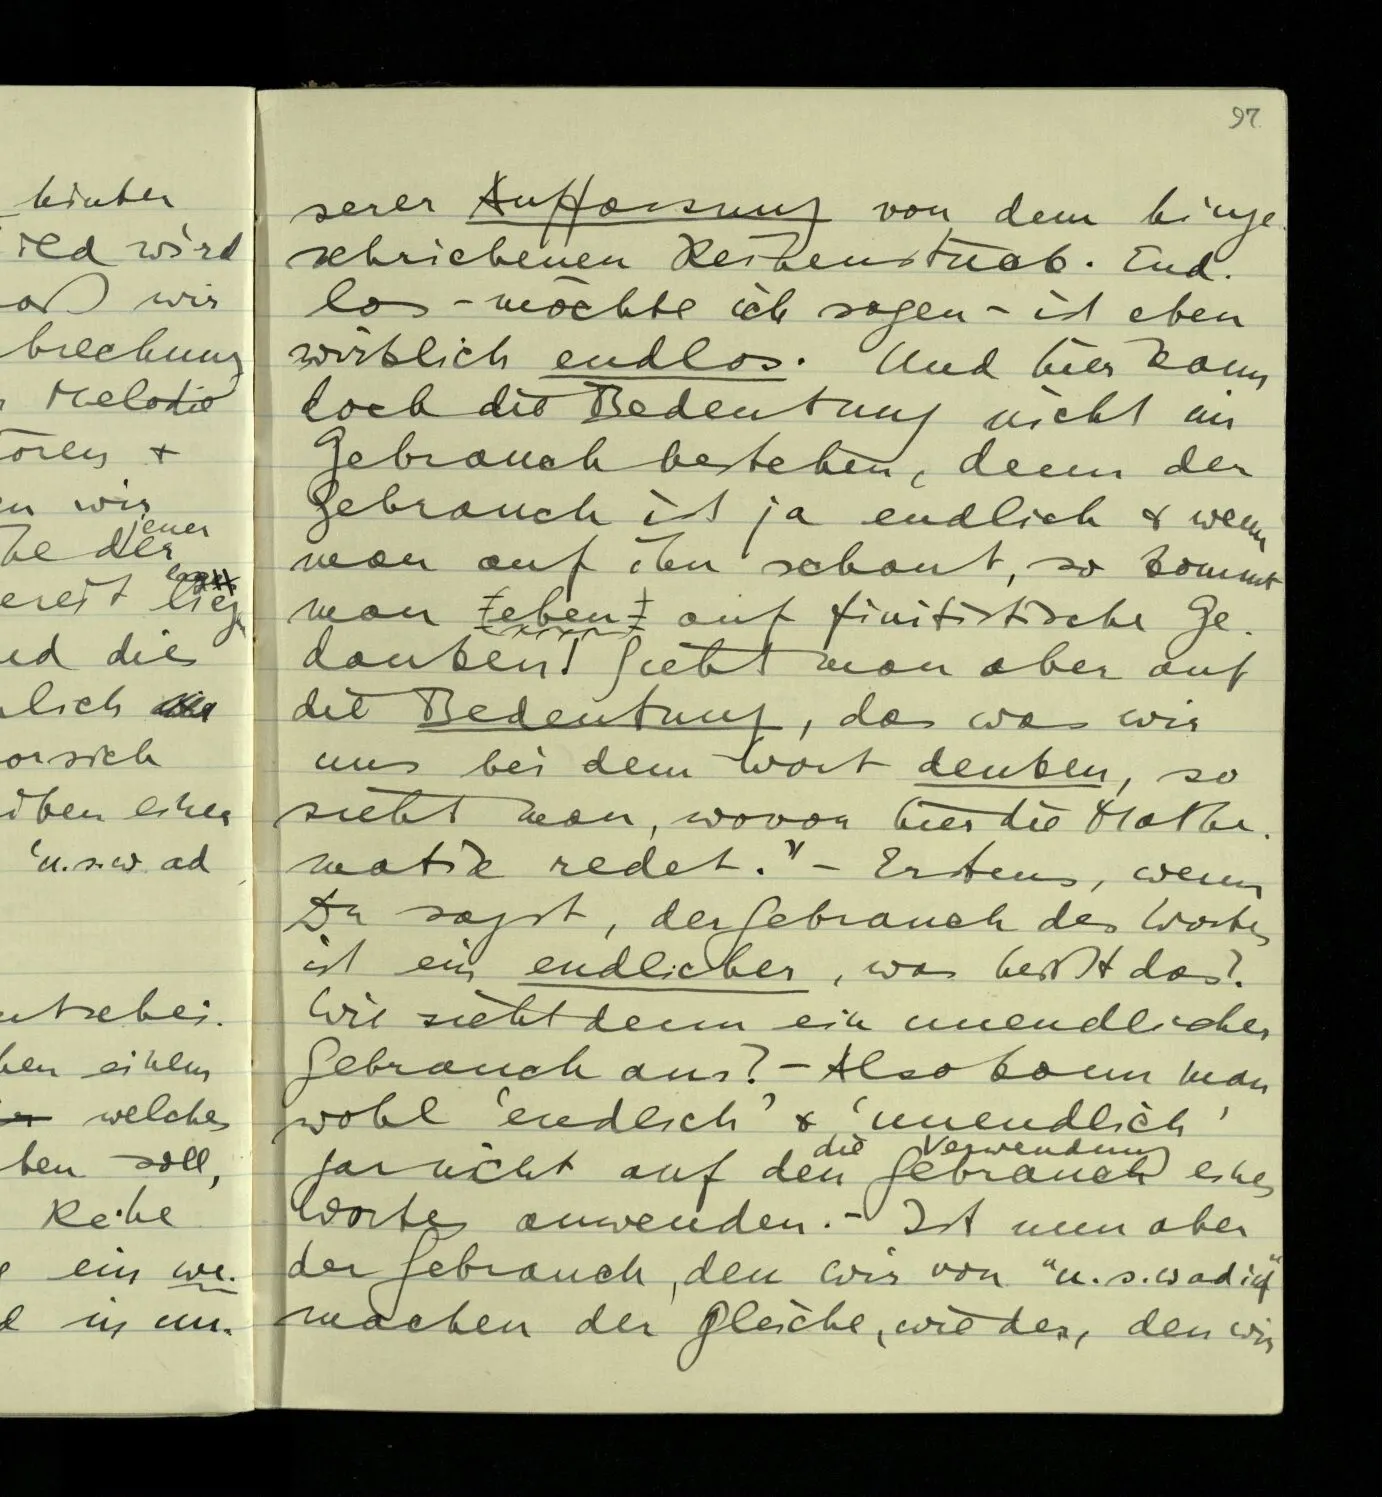 hinter
ild wird
aß wir
brechung
Melodie
ören +
en wir
jener
he der
lag
ereit lieg
nd die
lich
orsich
iben einer
'u.s.w. ad
ntschei-
hen einem
welches
ben soll,
Reihe
ein we-
d in un-
97
serer Auffassung von dem hinge-
schriebenen Reihenstück. End-
los – möchte ich sagen – ist eben
wirklich endlos. Und hier kann
doch die Bedeutung nicht im
Gebrauch bestehen, denn der
Gebrauch ist ja endlich & wenn
man auf ihn schaut, so kommt
man ‡eben‡ auf finitistische Ge-
danken! Sieht man aber auf
die Bedeutung, das was wir
uns bei dem Wort denken, so
sieht man, wovon hier die Mathe-
matik redet.” – Erstens, wenn
Du sagst, der Gebrauch des Wortes
ist ein endlicher, was heißt das?
Wie sieht denn ein unendlicher
Gebrauch aus? – Also kann man
wohl ‘endlich’ & ‘unendlich’
die Verwendung
gar nicht auf den Gebrauch eines
Wortes anwenden. – Ist nun aber
der Gebrauch, den wir von “u.s.w ad inf”
machen der gleiche, wie der, den wir